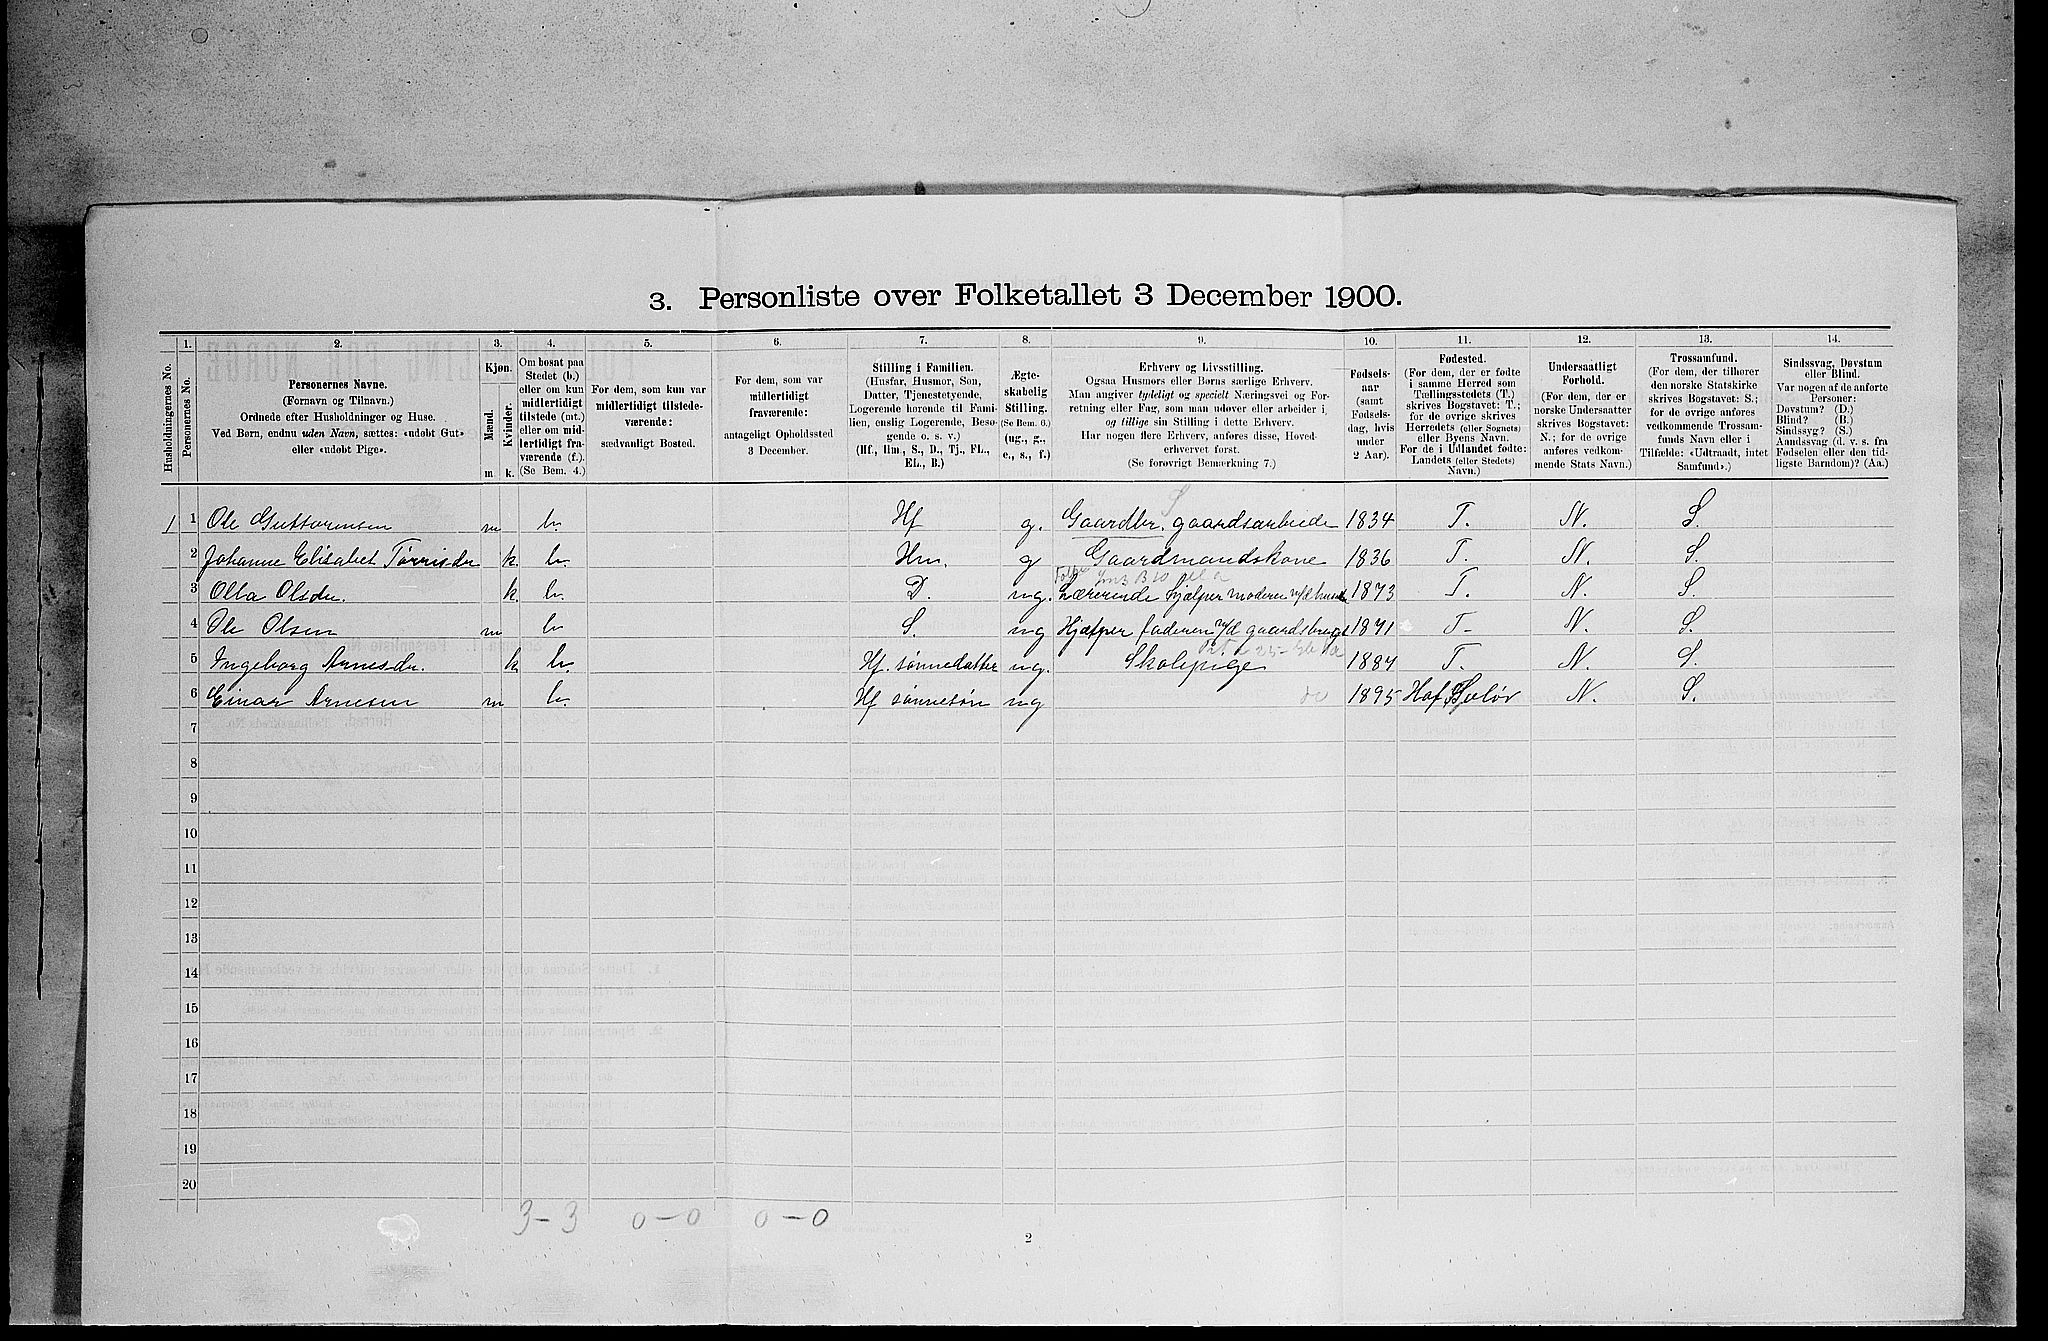 3. Personliste over Folketallet 3 December 1900.
Husholdningernes No.
1.
Personernes No.
2.
Personernes Navne.
(Fornavn og Tilnavn.)
Ordnede efter Husholdninger og Huse.
Ved Børn, endnu uden Navn, sættes: «udøbt Gut»
eller «udøbt Pige».
3.
Kjøn.
Mænd.
Kvinder.
m
k.
4.
Om bosat paa
Stedet (b.)
eller om kun
midlertidigt
tilstede (mt.)
eller om mid-
lertidigt fra-
værende (f.).
(Se Bem. 4.)
5.
For dem, som kun var
midlertidigt tilstede-
værende:
sædvanligt Bosted.
6.
For dem, som var
midlertidigt
fraværende:
antageligt Opholdssted
3 December.
7.
Stilling i Familien.
(Husfar, Husmor, Søn,
Datter, Tjenestetyende,
Logerende hørende til Fami-
lien, enslig Logerende, Besø-
gende o. s. v.)
(Hf., Hm., S., D., Tj., FL.,
EL., B.)
8.
Ægte-
skabelig
Stilling.
(Se Bem. 6.)
(ug., g.,
e., s., f.)
9.
Erhverv og Livsstilling.
Ogsaa Husmors eller Børns særlige Erhverv.
Man angiver tydeligt og specielt Næringsvei og For-
retning eller Fag, som man udøver eller arbeider i,
og tillige sin Stilling i dette Erhverv.
Har nogen flere Erhverv, anføres disse, Hoved-
erhvervet først.
(Se forøvrigt Bemærkning 7.)
10.
Fødsels-
aar
(samt
Fødsels-
dag, hvis
under
2 Aar).
11.
Fødested.
(For dem, der er fødte
i samme Herred som
Tællingsstedets (T.)
skrives Bogstavet: T.;
for de øvrige skrives
Herredets (eller Sognets)
eller Byens Navn.
For de i Udlandet fødte:
Landets (eller Stedets)
Navn.)
12.
Undersaatligt
Forhold.
(For dem, der er
norske Undersaatter
skrives Bogstavet:
N.; for de øvrige
anføres vedkom-
mende Stats Navn.)
13.
Trossamfund.
(For dem, der tilhører
den norske Statskirke
skrives Bogstavet: S.;
for de øvrige anføres
vedkommende Trossam-
funds Navn eller i
Tilfælde: «Udtraadt, intet
Samfund».)
14.
Sindssvag, Døvstum
eller Blind.
Var nogen af de anførte
Personer:
Døvstum? (D.)
Blind? (B.)
Sindssyg? (S.)
Aandssvag (d. v. s. fra
Fødselen eller den tid-
ligste Barndom)? (Aa.)
S
1 1 Ole Guttormsen m b. Hf g. Gaardbr. gaardsarbeide 1834 T. N. S.
2 Johanne Elisabet Tørrisdr k. b. Hm. g Gaardmandskone 1836 T. N. S.
3 Olba Olsdr. k. b. D. ug. Lærerinde hjælper moderen v/d huset 1873 T. N. S.
4 Ole Olsen m b S. ug Hjælper faderen v/d gaardsbruget 1871 T- N. S.
5 Ingeborg Arnesdr. k b. Hf. sønnedatter ug. Skolepige 1884 T. N. S.
6 Einar Arnesen m b. Hf sønnesøn ug do 1895 Hof Solør N. S.
7
8
9
10
11
12
13
14
15
16
17
18
19
20
3-3 0-0 0-0
2